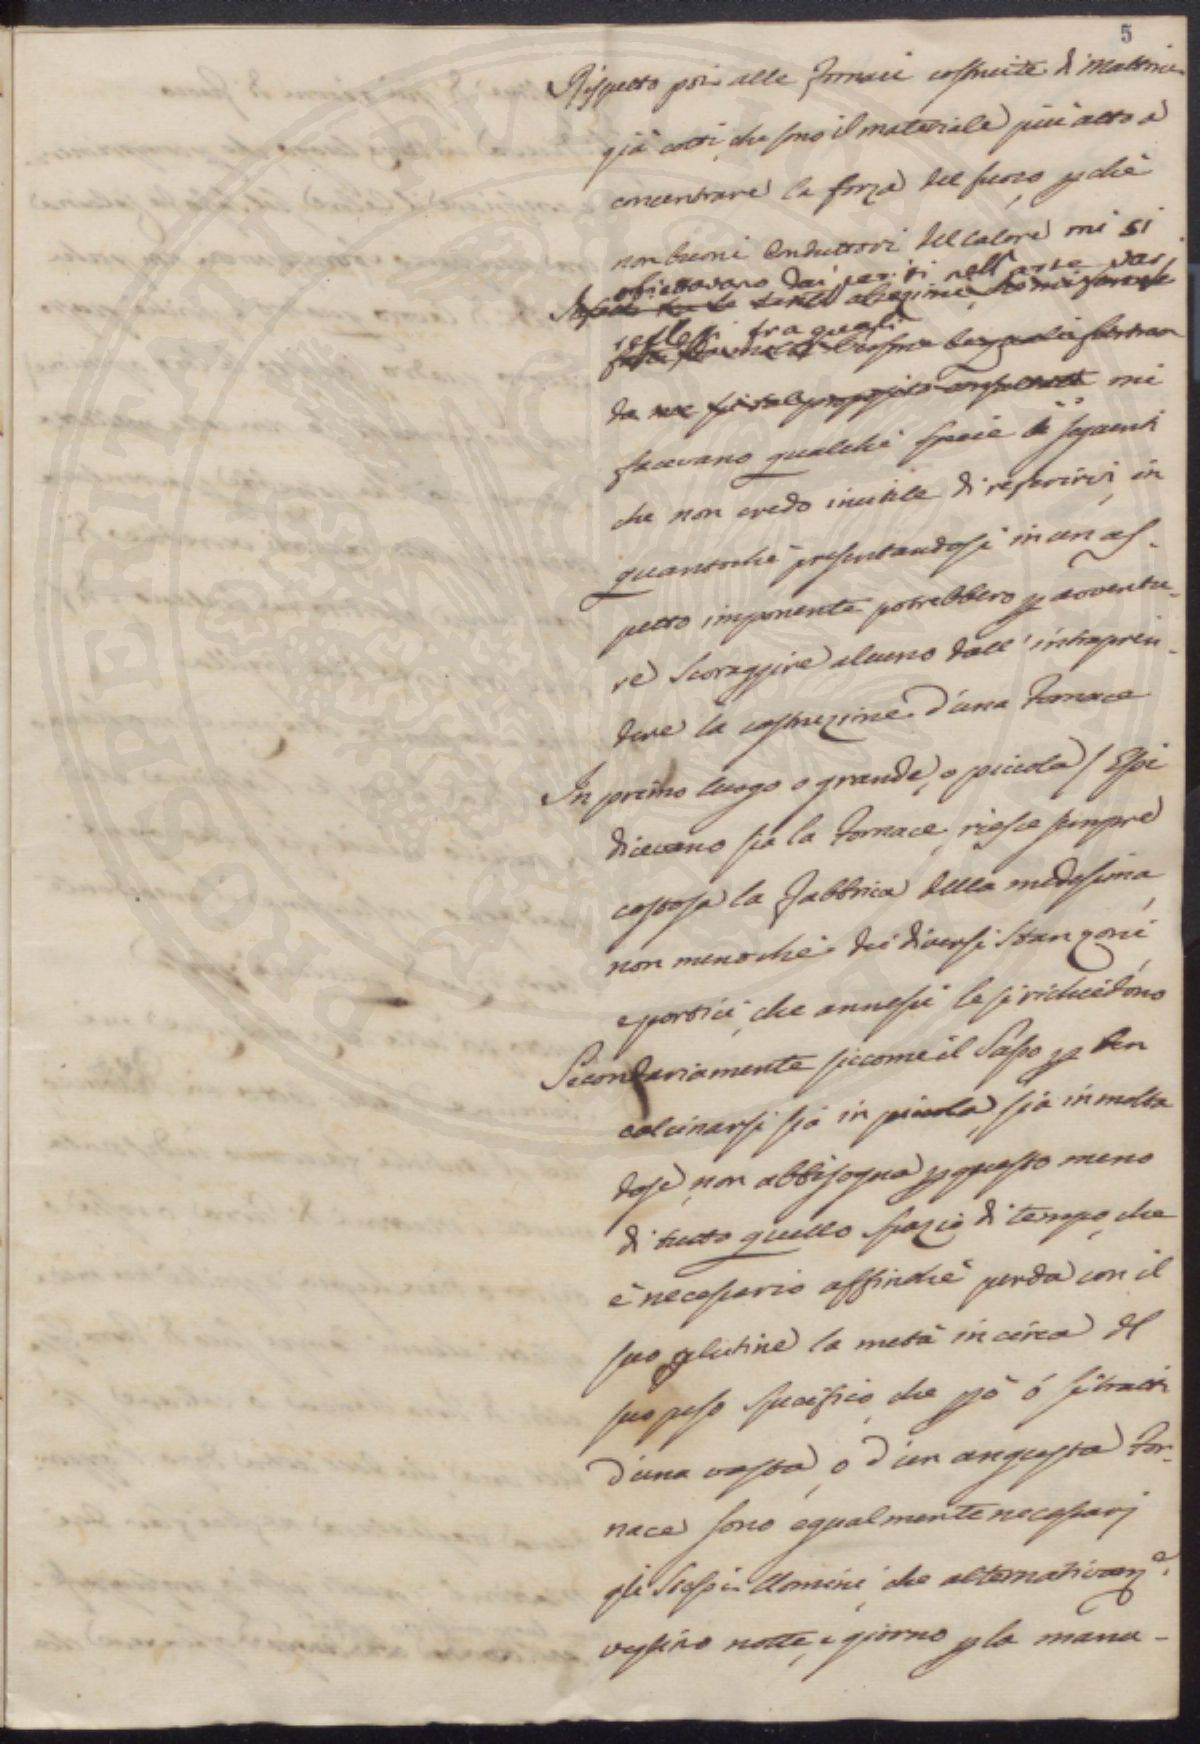 5
Rispetto poi alle Fornaci costruite di Mattoni
già cotti, che sono il materiale più atto a
concentrare la forza del fuoco pchè
non buoni Conduttori del calore mi si
obiettavano dai periti nell'arte varj
riflessi tra quali
da me mi
facevano qualche specie i seguenti
che non credo inutile di riferirvi, in
quantochè presentandosi in un as-
petto imponente potrebbero p avventu-
re scoraggire alcuno dall'intrapren-
dere la costruzione d'una Fornace
In primo luogo o grande, o piccola / Essi
dicevano sia la Fornace, riesce sempre
costosa la Fabbrica della medesima,
non meno che dei diversi Stanzoni,
e portici, che annessi le si richiedono
Secondariamente siccome il Sasso p ben
calcinarsi sia in piccola, sia in molta
dose, non abbisogna p questo meno
di tutto quello spazio di tempo, che
è necessario affinchè perda con il
suo glutine la metà in circa del
suo peso specifico, che pò ò si tratti
d'una vasta, o d'un angusta For-
nace sono egualmente necessarj
gli Stessi Uomini, che alternativam.e
veglino notte, e giorno p la manu-